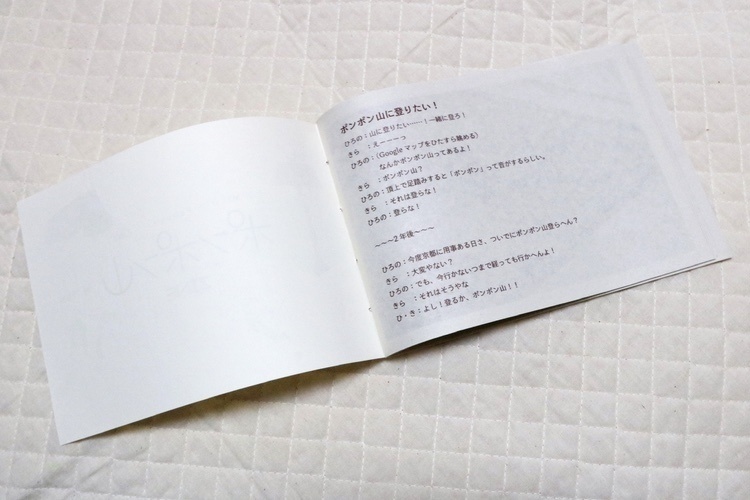 ポンポン山に登りたい！
ひろの：山に登りたい……！一緒に登ろ！
きら　：えーーーっ
ひろの：（Googleマップをひたすら眺める）
なんかポンポン山ってあるよ！
きら　：ポンポン山？
ひろの：頂上で足踏みすると「ポンポン」って音がするらしい。
きら　：それは登らな！
ひろの：登らな！
～～～2年後～～～
ひろの：今度京都に用事ある日さ、ついでにポンポン山登らへん？
きら　：大変やない？
ひろの：でも、今行かないつまで経っても行かへんよ！
きら　：それはそうやな
ひ・き：よし！登るか、ポンポン山！！